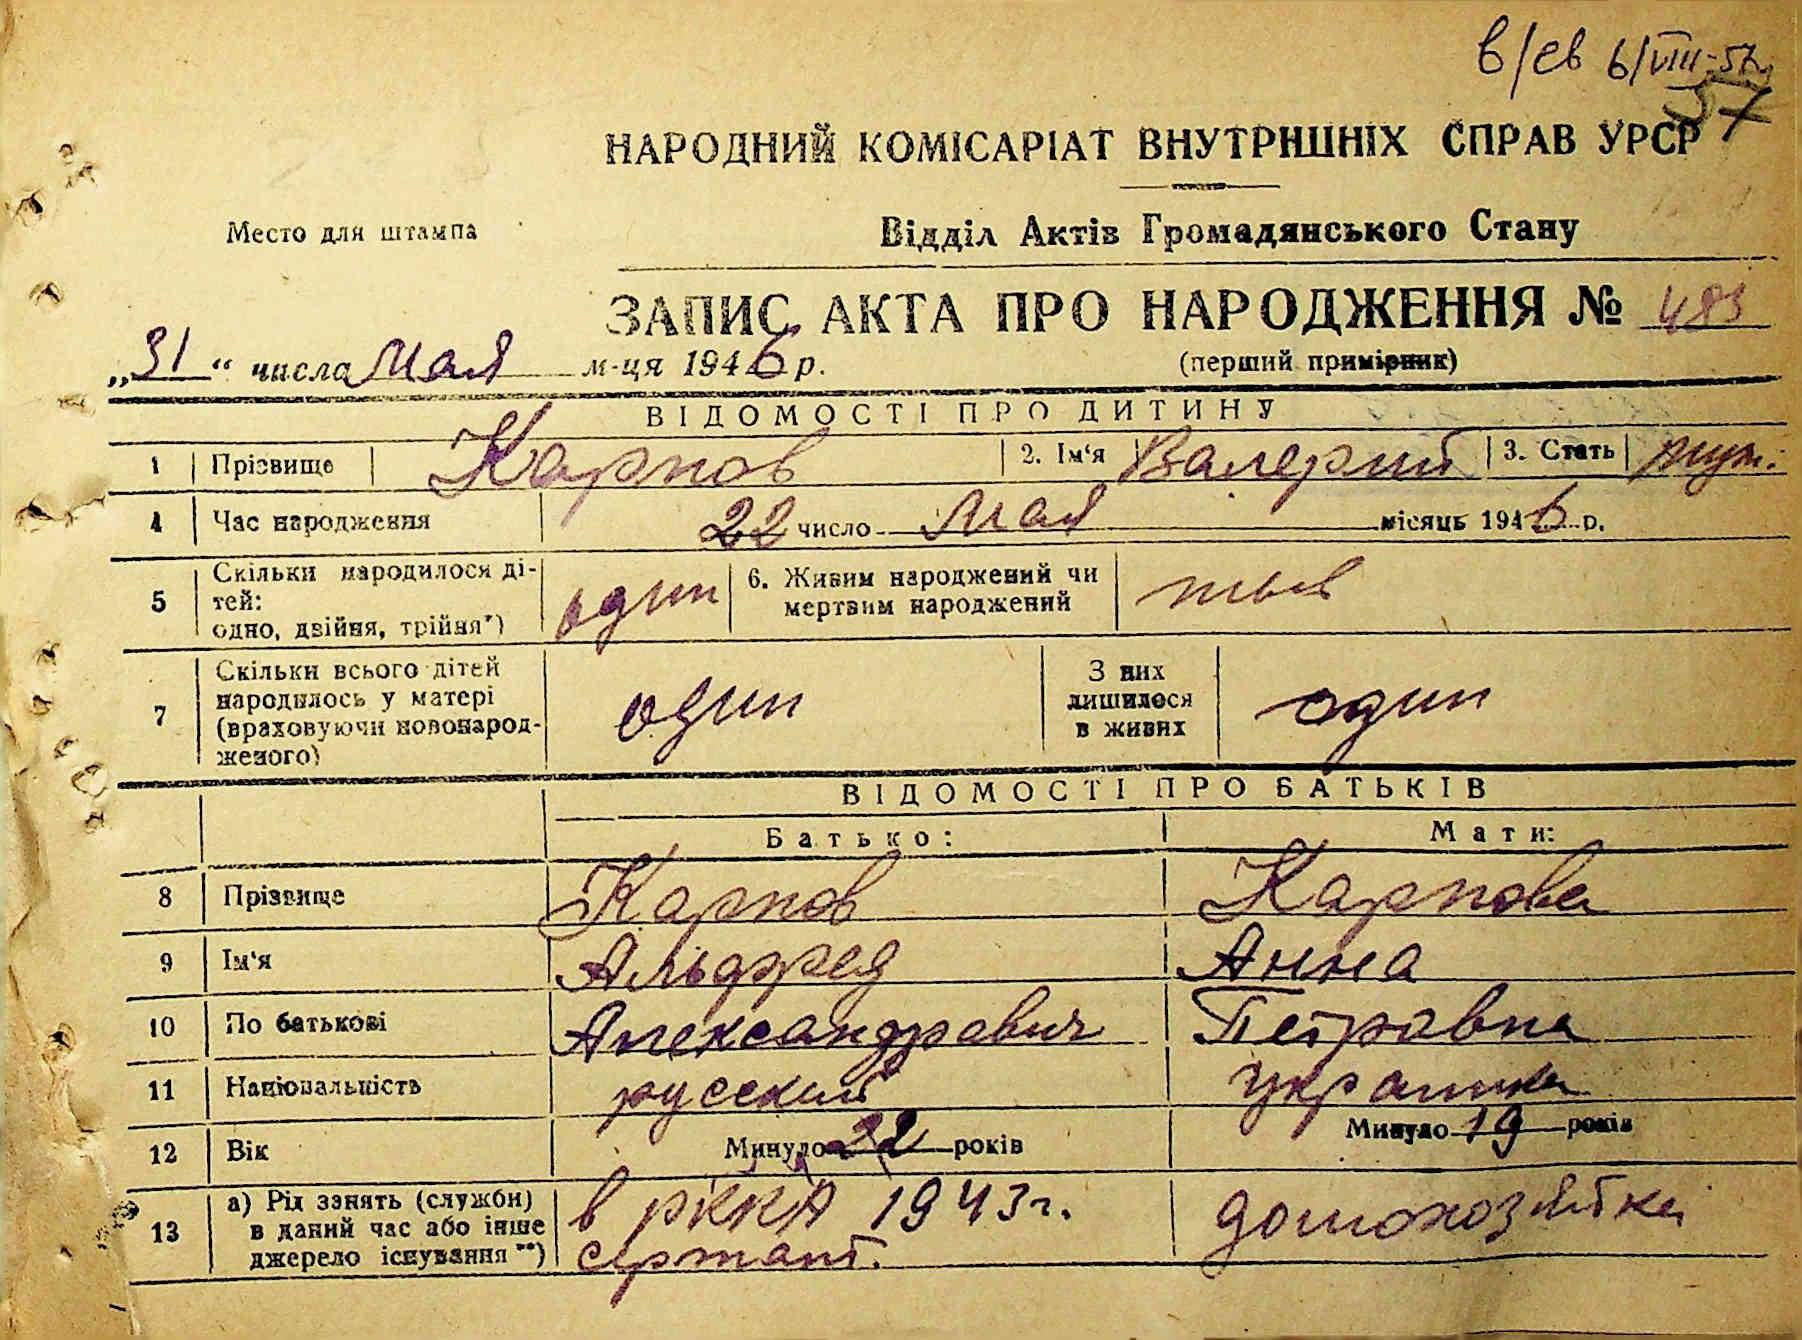 в/св 6/VIII-57г.
57
НАРОДНИЙ КОМІСАРІАТ ВНУТРІШНІХ СПРАВ УРСР
Место для штампа
Відділ Актів Громадянського Стану
ЗАПИС АКТА ПРО НАРОДЖЕННЯ № 483
„31“ числа мая м-ця 1946 р.
(перший примірник)
ВІДОМОСТІ ПРО ДИТИНУ
1 Прізвище Карпов 2. Ім'я Валерий 3. Стать муж.
4 Час народження 22 число мая місяць 1946 р.
5 Скільки народилося ді-
тей:
одно, двійня, трійня*) один 6. Живим народжений чи
мертвим народжений
7 Скільки всього дітей
народилось у матері
(враховуючи новонарод-
женого) один З них
лишилося
в живих один
ВІДОМОСТІ ПРО БАТЬКІВ
Батько: Мати:
8 Прізвище Карпов Карпова
9 Ім'я Альфред Анна
10 По батькові Александрович Петровна
11 Національність русский украинка
12 Вік Минуло 22 років Минуло 19 років
13 а) Рід занять (служби)
в даний час або інше
джерело існування **) в РККА 1943 г.
сержант. домохозяйка